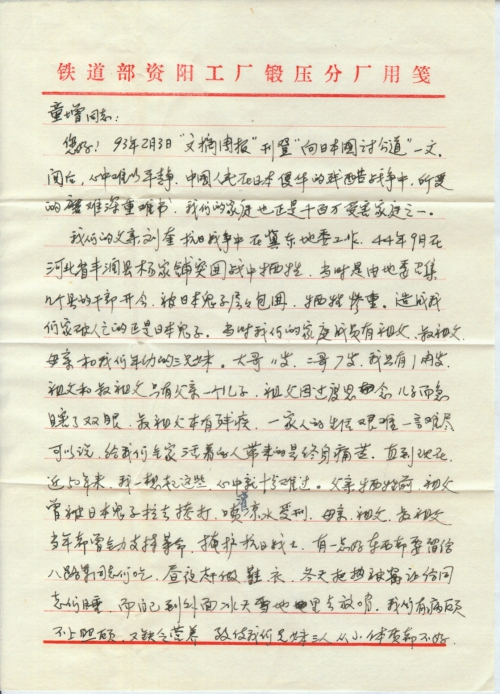 铁道部资阳工厂锻压分厂用笺
童增同志：
您好！93年2月3日“文摘周报”刊登“向日本国讨公道”一文，
阅后，心中难以平静，中国人民在日本侵华的残酷战争中，所受
的磨难深重难书，我们的家庭也正是千百万受害家庭之一。
我们的父亲刘奎抗日战争中在冀东地委工作，44年9月在
河北省丰润县杨家铺突围战中牺牲，当时是由地委召集
几个县的干部开会，被日本鬼子包围，牺牲惨重。造成我
们家破人亡的正是日本鬼子。当时我们的家庭成员有祖父、叔祖父、
母亲和我们年幼的三兄妹。大哥11岁，二哥7岁，我只有1岁，
祖父和叔祖父只有父亲一个儿子，祖父因过度思念儿子而急
瞎了双眼，叔祖父本有残疾，一家人的生活艰难一言难尽
可以说，给我们全家活着的人带来的是终身痛苦，直到现在，
近50年来，我一想起这些心中就十分难过。父亲牺牲前，祖父
曾被日本鬼子拉去拷打，喷凉水受刑，母亲、祖父、叔祖父
当年都尽全力支持革命，掩护抗日战士，有一点好东西都要留给
八路军同志们吃，昼夜赶做鞋衣，冬天把热被窝让给同
志们睡，而自己到外面冰天雪地里去放哨，我们有病顾
不上照顾，又缺乏营养，致使我们兄妹三人从小体质都不好，